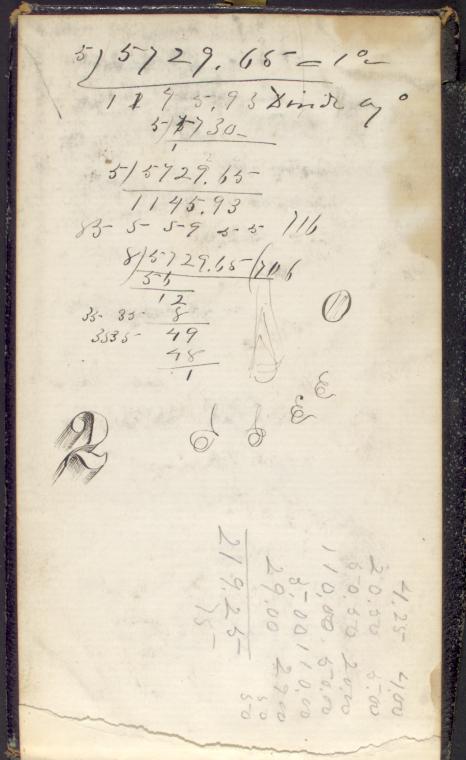 5) 5729.65 = 1°
1 1 4 5.93 Divide by °
5) 5730
1
5) 5729.65
1145.93
85 5 5 9 5 5 716
8) 5729.65 (716
56
12
35 35 8
3535 49
48
1
0
2
6 6
4.25 4.00
20.50 5.00
50.50 20.00
110.00 50.00
5.00 110.00
29.00 29.00
50
219.25